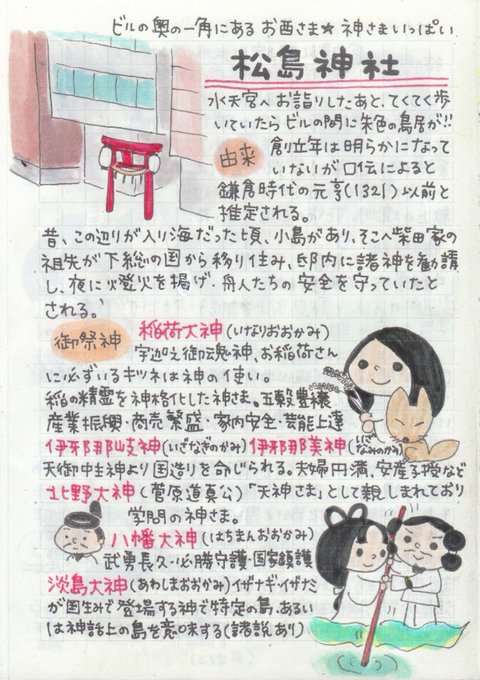 ビルの奥の一角にあるお酉さま★神さまいっぱい
松島神社
水天宮へお詣りしたあと、てくてく歩
いていたらビルの間に朱色の鳥居が!!
由来
創立年は明らかになって
いないが口伝によると
鎌倉時代の元亨(1321)以前と
推定される。
昔、この辺りが入り海だった頃、小島があり、そこへ柴田家の
祖先が下総の国から移り住み、邸内に諸神を勧請
し、夜に燈火を掲げ・舟人たちの安全を守っていたと
される。
御祭神
稲荷大神(いなりおおかみ)
宇迦之御魂神、お稲荷さん
に必ずいるキツネは神の使い。
稲の精霊を神格化した神さま。五穀豊穣
産業振興・商売繁盛・家内安全・芸能上達
伊邪那岐神(いざなぎのかみ)伊邪那美神(いざなみのかみ)
天御中主神より国造りを命じられる。夫婦円満、安産子授など
北野大神(菅原道真公)「天神さま」として親しまれており
学問の神さま。
八幡大神(はちまんおおかみ)
武勇長久・必勝守護・国家鎮護
淡島大神(あわしまおおかみ)イザナギ・イザナミ
が国生みで登場する神で特定の島、あるい
は神話上の島を意味する(諸説あり)